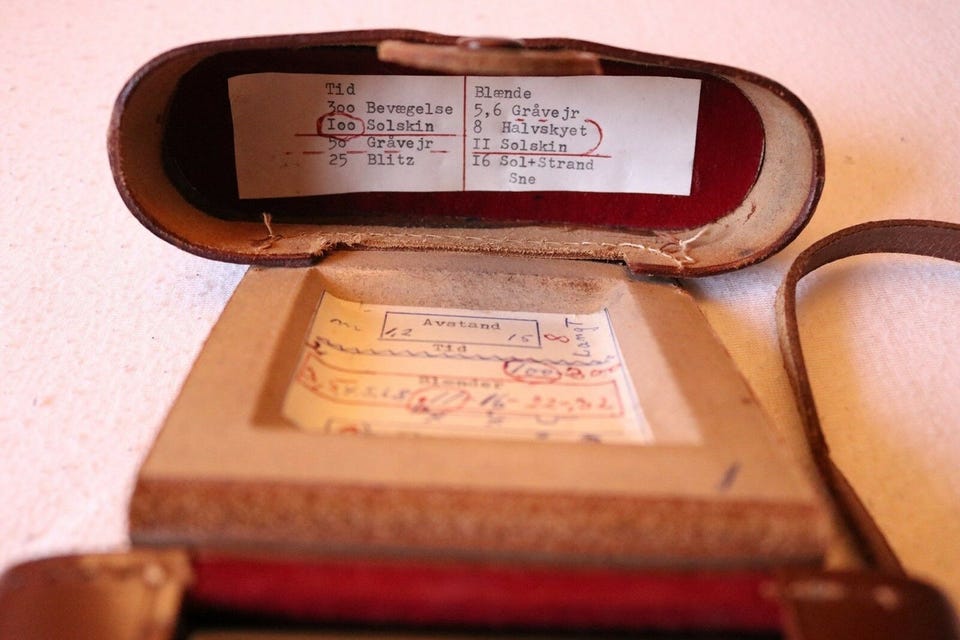 Tid
3oo Bevægelse
Ioo Solskin
5o Gråvejr
25 Blitz
Blænde
5,6 Gråvejr
8 Halvskyet
II Solskin
I6 Sol+Strand
Sne
Avstand
1,2 15 8 Langt
Tid
100 300
Blender
11 16 - 22 - 32